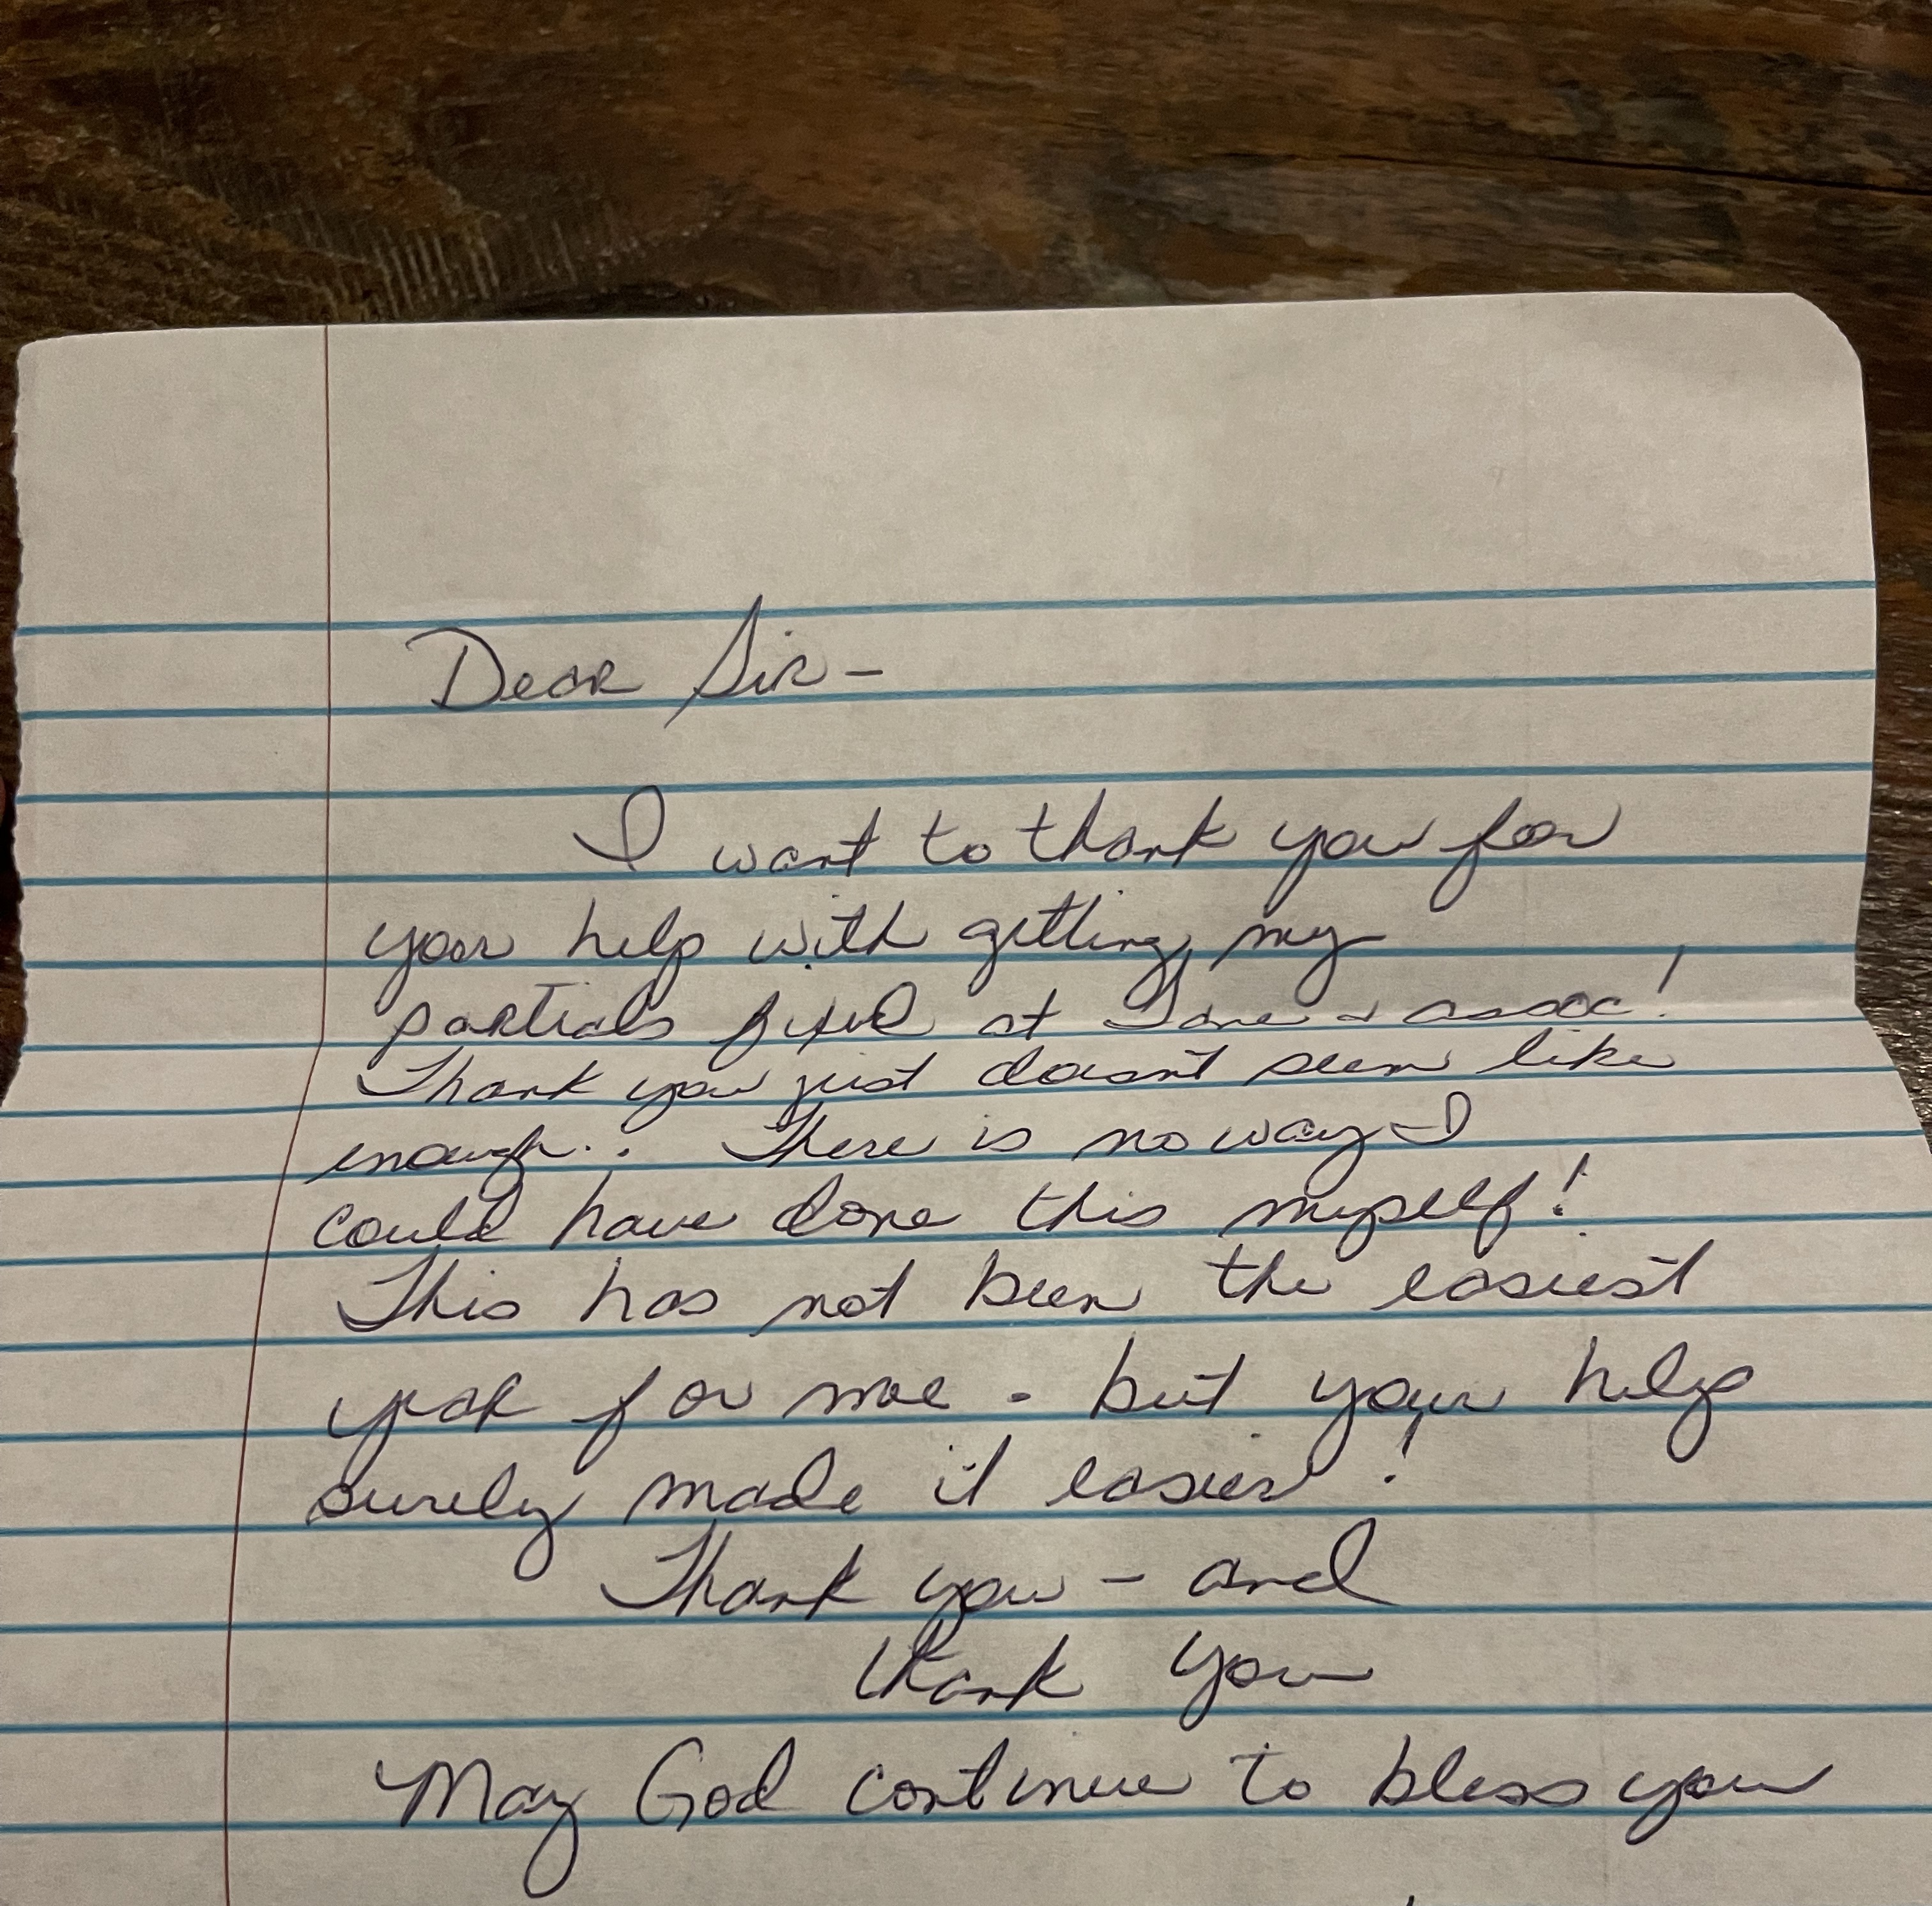 Dear Sir-
I want to thank you for
your help with getting my
partials fixed at & assoc!
Thank you just doesn't seem like
enough.. There is no way I
could have done this myself!
This has not been the easiest
year for me - but your help
surely made it easier!
Thank you - and
thank you
May God continue to bless you